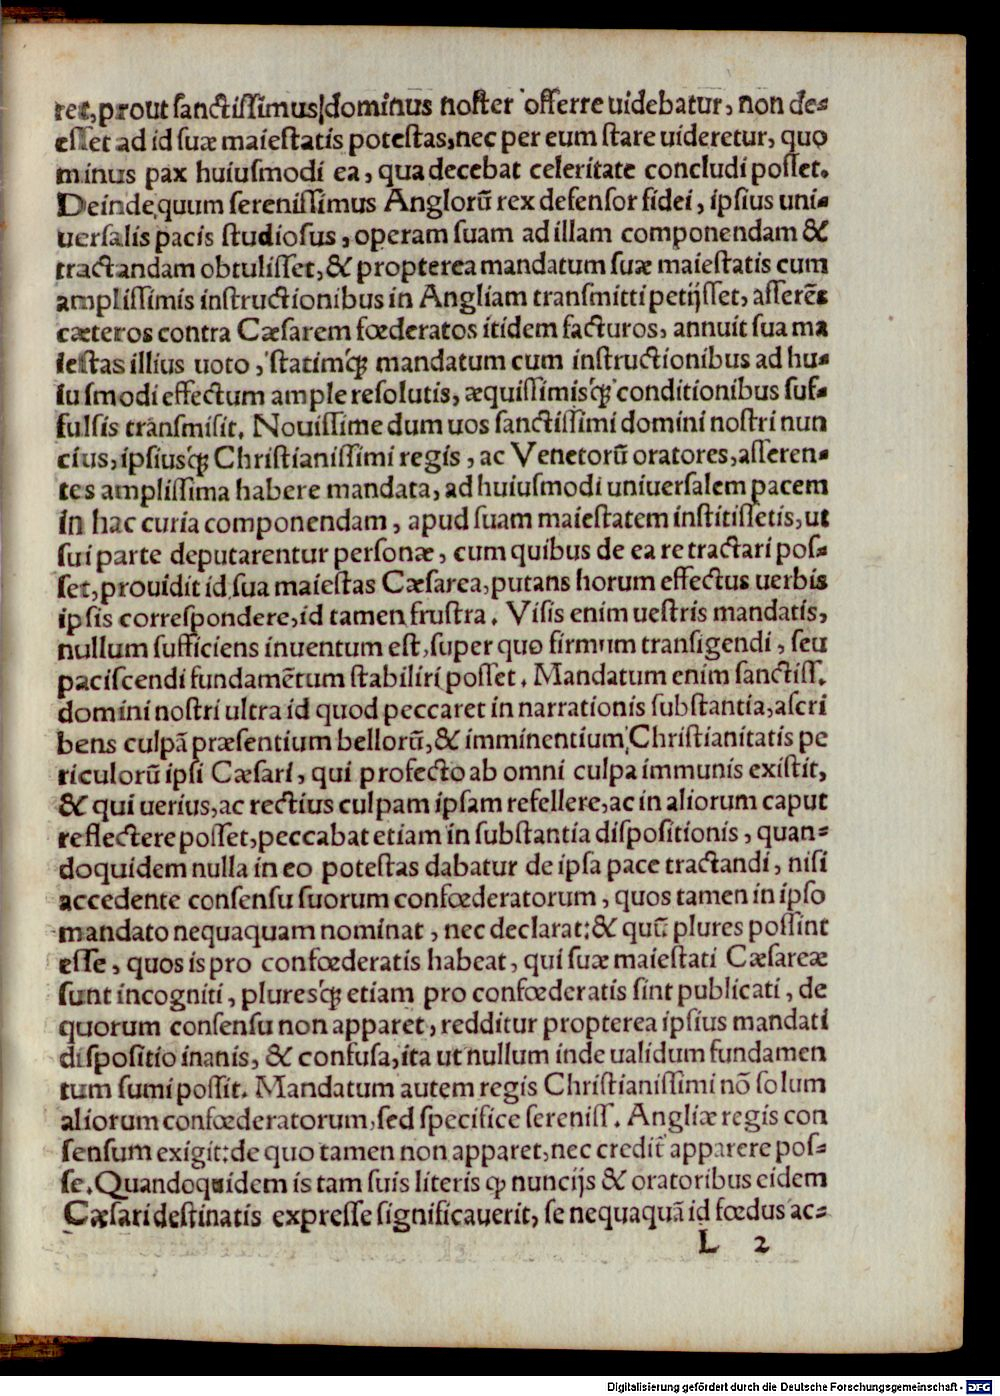 ret, prout sanctissimus dominus noster offerre uidebatur, non de-
esset ad id suæ maiestatis potestas, nec per eum stare uideretur, quo
minus pax huiusmodi ea, qua decebat celeritate concludi posset.
Deinde quum serenissimus Anglorũ rex defensor fidei, ipsius uni-
uersalis pacis studiosus, operam suam ad illam componendam &
tractandam obtulisset, & propterea mandatum suæ maiestatis cum
amplissimis instructionibus in Angliam transmitti petijsset, asserẽs
cæteros contra Cæsarem fœderatos itidem facturos, annuit sua ma
iestas illius uoto, statimq́ꝫ mandatum cum instructionibus ad hu-
iusmodi effectum ample resolutis, æquissimisq́ꝫ conditionibus suf-
fulsis transmisit. Nouissime dum uos sanctissimi domini nostri nun
cius, ipsiusq́ꝫ Christianissimi regis, ac Venetorũ oratores, asseren-
tes amplissima habere mandata, ad huiusmodi uniuersalem pacem
in hac curia componendam, apud suam maiestatem institissetis, ut
sui parte deputarentur personæ, cum quibus de ea re tractari pos-
set, prouidit id sua maiestas Cæsarea, putans horum effectus uerbis
ipsis correspondere, id tamen frustra. Visis enim uestris mandatis,
nullum sufficiens inuentum est, super quo firmum transigendi, seu
paciscendi fundamẽtum stabiliri posset. Mandatum enim sanctiss.
domini nostri ultra id quod peccaret in narrationis substantia, ascri
bens culpã præsentium bellorũ, & imminentium Christianitatis pe
riculorũ ipsi Cæsari, qui profecto ab omni culpa immunis existit,
& qui uerius, ac rectius culpam ipsam refellere, ac in aliorum caput
reflectere posset, peccabat etiam in substantia dispositionis, quan-
doquidem nulla in eo potestas dabatur de ipsa pace tractandi, nisi
accedente consensu suorum confœderatorum, quos tamen in ipso
mandato nequaquam nominat, nec declarat: & quũ plures possint
esse, quos is pro confœderatis habeat, qui suæ maiestati Cæsareæ
sunt incogniti, pluresq́ꝫ etiam pro confœderatis sint publicati, de
quorum consensu non apparet, redditur propterea ipsius mandati
dispositio inanis, & confusa, ita ut nullum inde ualidum fundamen
tum sumi possit. Mandatum autem regis Christianissimi nõ solum
aliorum confœderatorum, sed specifice sereniss. Angliæ regis con
sensum exigit: de quo tamen non apparet, nec credit᷑ apparere pos-
se. Quandoquidem is tam suis literis ꝙ nuncijs & oratoribus eidem
Cæsari destinatis expresse significauerit, se nequaquã id fœdus ac-
L 2
Digitalisierung gefördert durch die Deutsche Forschungsgemeinschaft - DFG